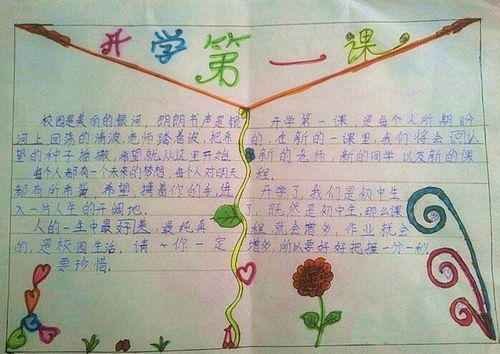 开学第一课
校园是美丽的银河，朗朗书声是银
河上回荡的清波，老师踏着波，把希
望的种子播撒，希望就从这里开始。
每个人都有一个未来的梦想，每个人对明天
都有所希冀。希望，撑着你的手，进
入一片人生的开阔地。
人的一生中最好的，最纯真
的，是校园生活，请你一定
要珍惜。
开学第一课，是每个人所期盼
的，在新的一课里，我们将会回认
新的老师，新的同学以及新的课
程。
开学了，我们是初中生
了，既然是初中生，那么课
程就会增多，作业就会
增多，所以要好好把握一分一秒。